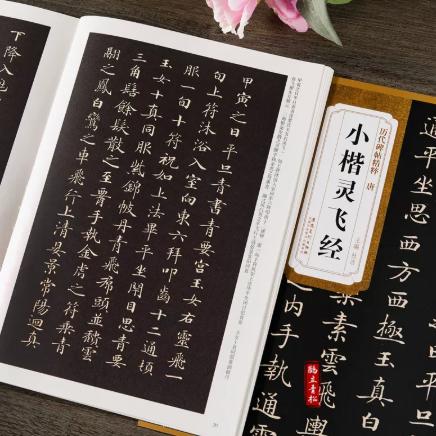 甲寅之日平旦青書青要宮玉女右靈飛一
旬上符沐浴入室向東六拜叩齒十二通頓
服一旬十符祝如上法畢平坐閉目思青要
玉女十真同服紫錦帔丹青飛裙頭並頹雲
三角髻餘髮散之至臂手執金虎之符乘青
翮之鳳白鸞之車飛行上清晏景常陽迴真
下降入
历代碑帖精粹 唐
小楷灵飞经
主编 杜浩
平坐思西方西極玉真
素雲飛
内手執通
鹤立青松